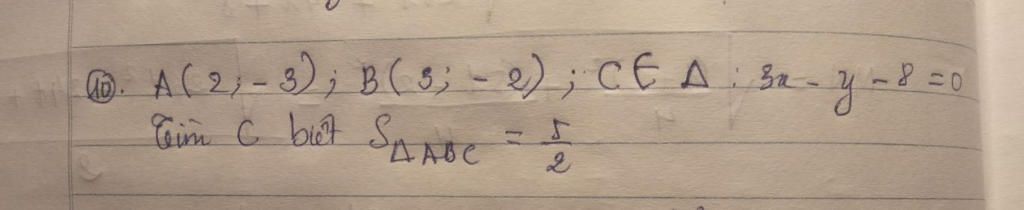 ⑩. A(2;-3); B(3;-2); C ∈ Δ: 3x - y - 8 = 0
Tìm C biết S_{ΔABC} = 5/2